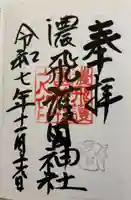 奉拝
濃飛護國神社
令和七年十一月十六日